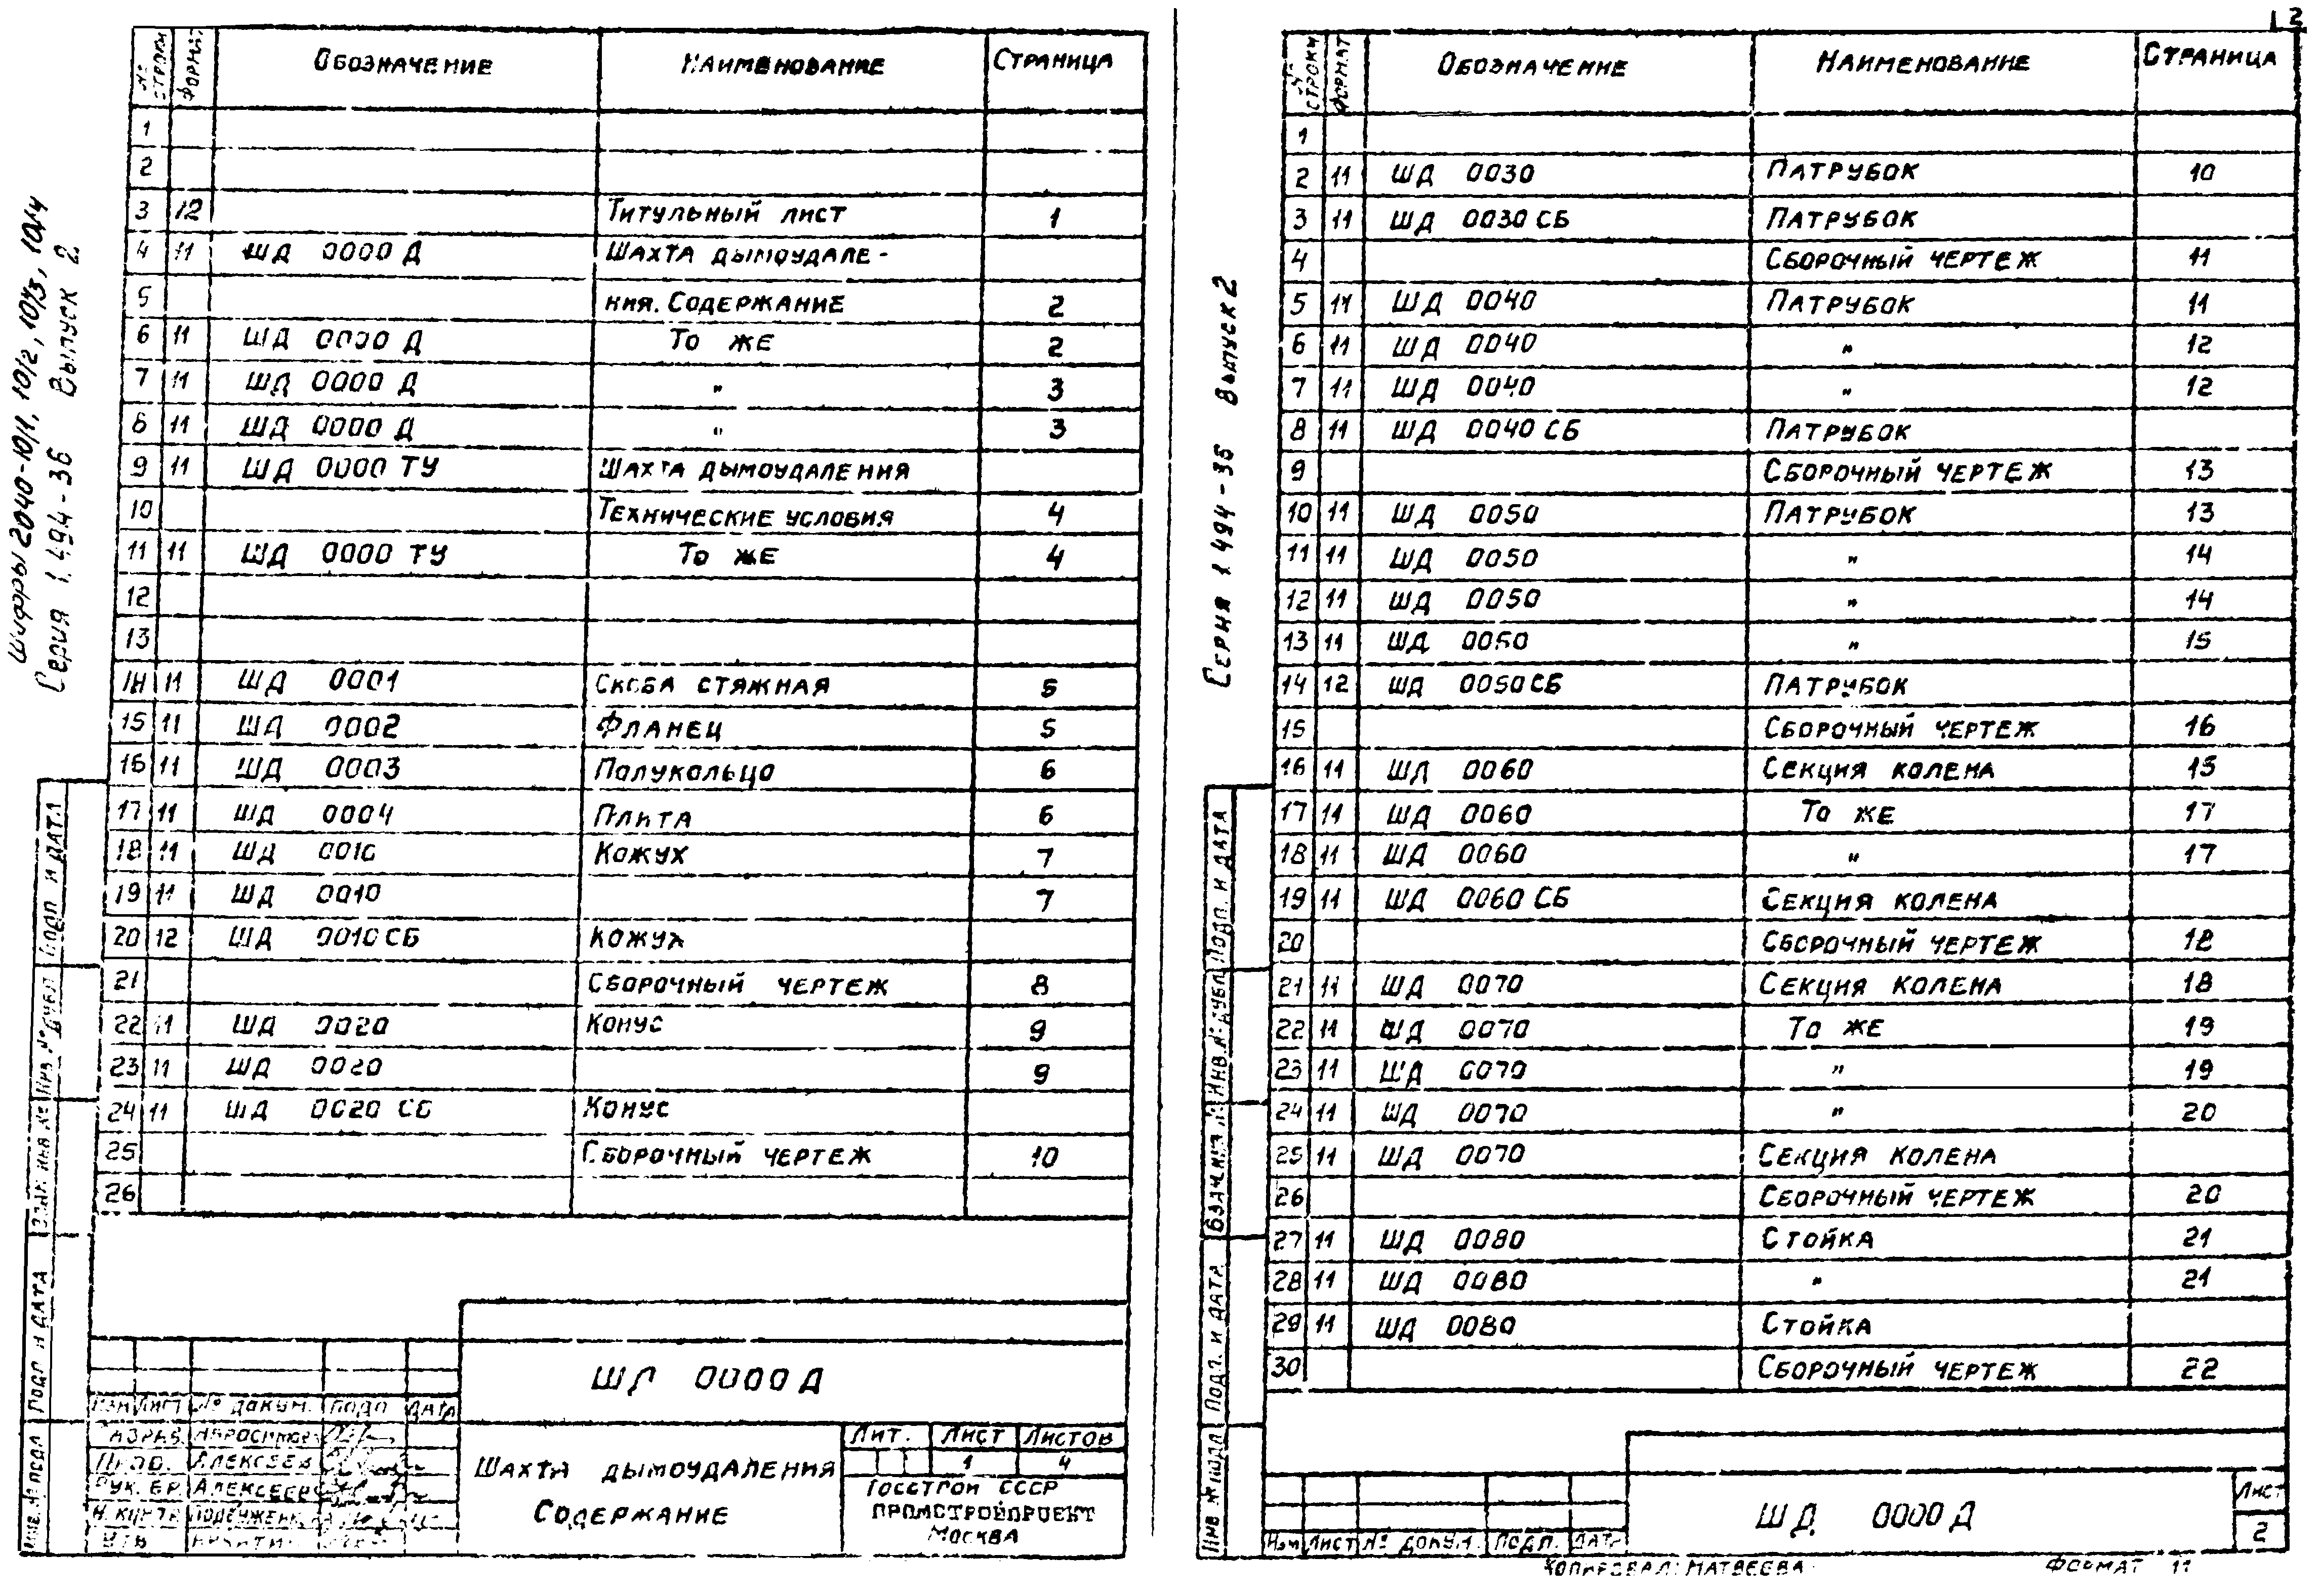 2
Шифры 2040-10/1, 10/2, 10/3, 10/4
Серия 1.494-36 Выпуск 2
№ строки Формат Обозначение Наименование Страница
1
2
3 12 Титульный лист 1
4 11 ШД 0000 Д Шахта дымоудале-
5 ния. Содержание 2
6 11 ШД 0000 Д То же 2
7 11 ШД 0000 Д " 3
8 11 ШД 0000 Д " 3
9 11 ШД 0000 ТУ Шахта дымоудаления
10 Технические условия 4
11 11 ШД 0000 ТУ То же 4
12
13
14 11 ШД 0001 Скоба стяжная 5
15 11 ШД 0002 Фланец 5
16 11 ШД 0003 Полукольцо 6
17 11 ШД 0004 Плита 6
18 11 ШД 0010 Кожух 7
19 11 ШД 0010 7
20 12 ШД 0010 СБ Кожух
21 Сборочный чертеж 8
22 11 ШД 0020 Конус 9
23 11 ШД 0020 9
24 11 ШД 0020 СБ Конус
25 Сборочный чертеж 10
26
Подп. и дата
Инв. № дубл
Взам. инв №
Подп и дата
Инв. № подл
ШД 0000 Д
Изм Лист № докум. Подп Дата
Разраб.
Пров. Алексеев
Рук. бр. Алексеев
Н. контр
Утв
Шахта дымоудаления
Содержание
Лит. Лист Листов
1 4
Госстрой СССР
ПРОМСТРОЙПРОЕКТ
Москва
Серия 1.494-36 Выпуск 2
№ строки Формат Обозначение Наименование Страница
1
2 11 ШД 0030 Патрубок 10
3 11 ШД 0030 СБ Патрубок
4 Сборочный чертеж 11
5 11 ШД 0040 Патрубок 11
6 11 ШД 0040 " 12
7 11 ШД 0040 " 12
8 11 ШД 0040 СБ Патрубок
9 Сборочный чертеж 13
10 11 ШД 0050 Патрубок 13
11 11 ШД 0050 " 14
12 11 ШД 0050 " 14
13 11 ШД 0050 " 15
14 12 ШД 0050 СБ Патрубок
15 Сборочный чертеж 16
16 11 ШД 0060 Секция колена 15
17 11 ШД 0060 То же 17
18 11 ШД 0060 " 17
19 11 ШД 0060 СБ Секция колена
20 Сборочный чертеж 18
21 11 ШД 0070 Секция колена 18
22 11 ШД 0070 То же 19
23 11 ШД 0070 " 19
24 11 ШД 0070 " 20
25 11 ШД 0070 Секция колена
26 Сборочный чертеж 20
27 11 ШД 0080 Стойка 21
28 11 ШД 0080 " 21
29 11 ШД 0080 Стойка
30 Сборочный чертеж 22
Подп. и дата
Инв. № дубл
Взам. инв. №
Подп. и дата
Инв № подл
Изм Лист № докум. Подп. Дата
ШД 0000 Д
Лист
2
Копировал: Матвеева Формат 11